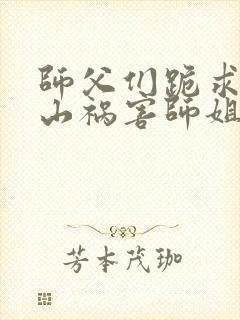 師父们跪求
山祸害師姐
芳本茂珈